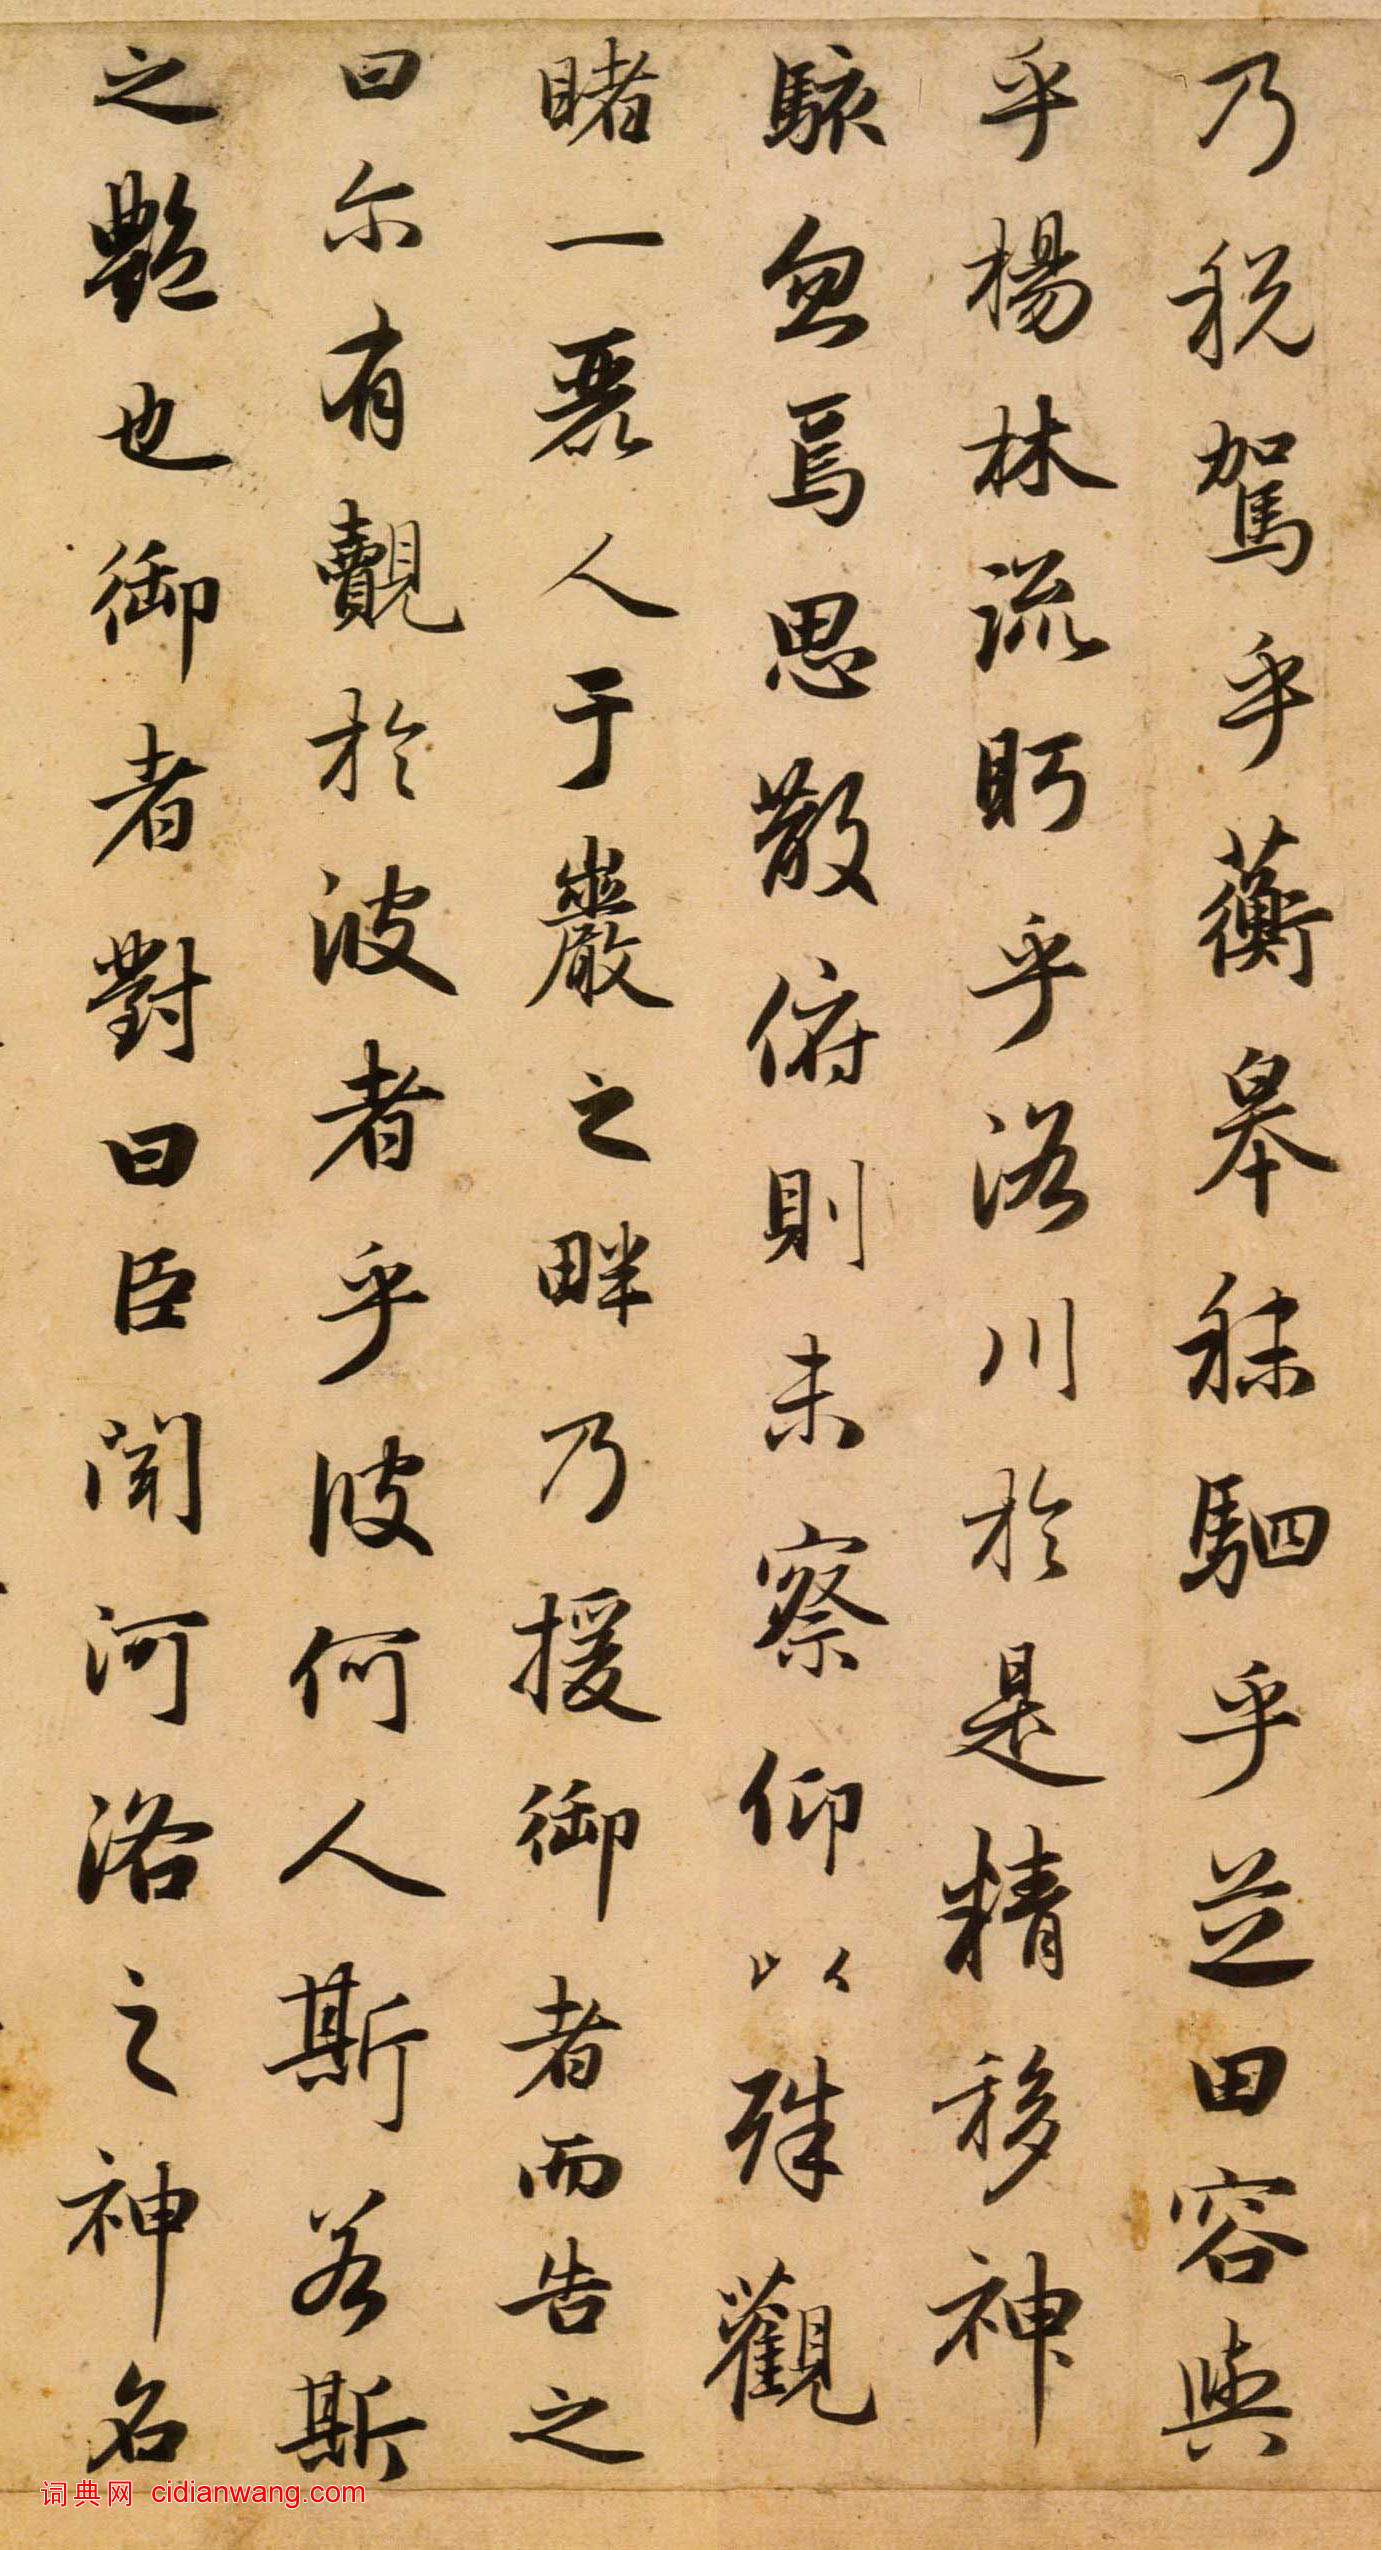 乃税駕乎蘅皋秣駟乎芝田容與
乎楊林流眄乎洛川於是精移神
駭忽焉思散俯則未察仰以殊觀
睹一麗人于巖之畔乃援御者而告之
曰尔有覿於彼者乎彼何人斯若斯
之艷也御者對曰臣聞河洛之神名
词典网 cidianwang.com